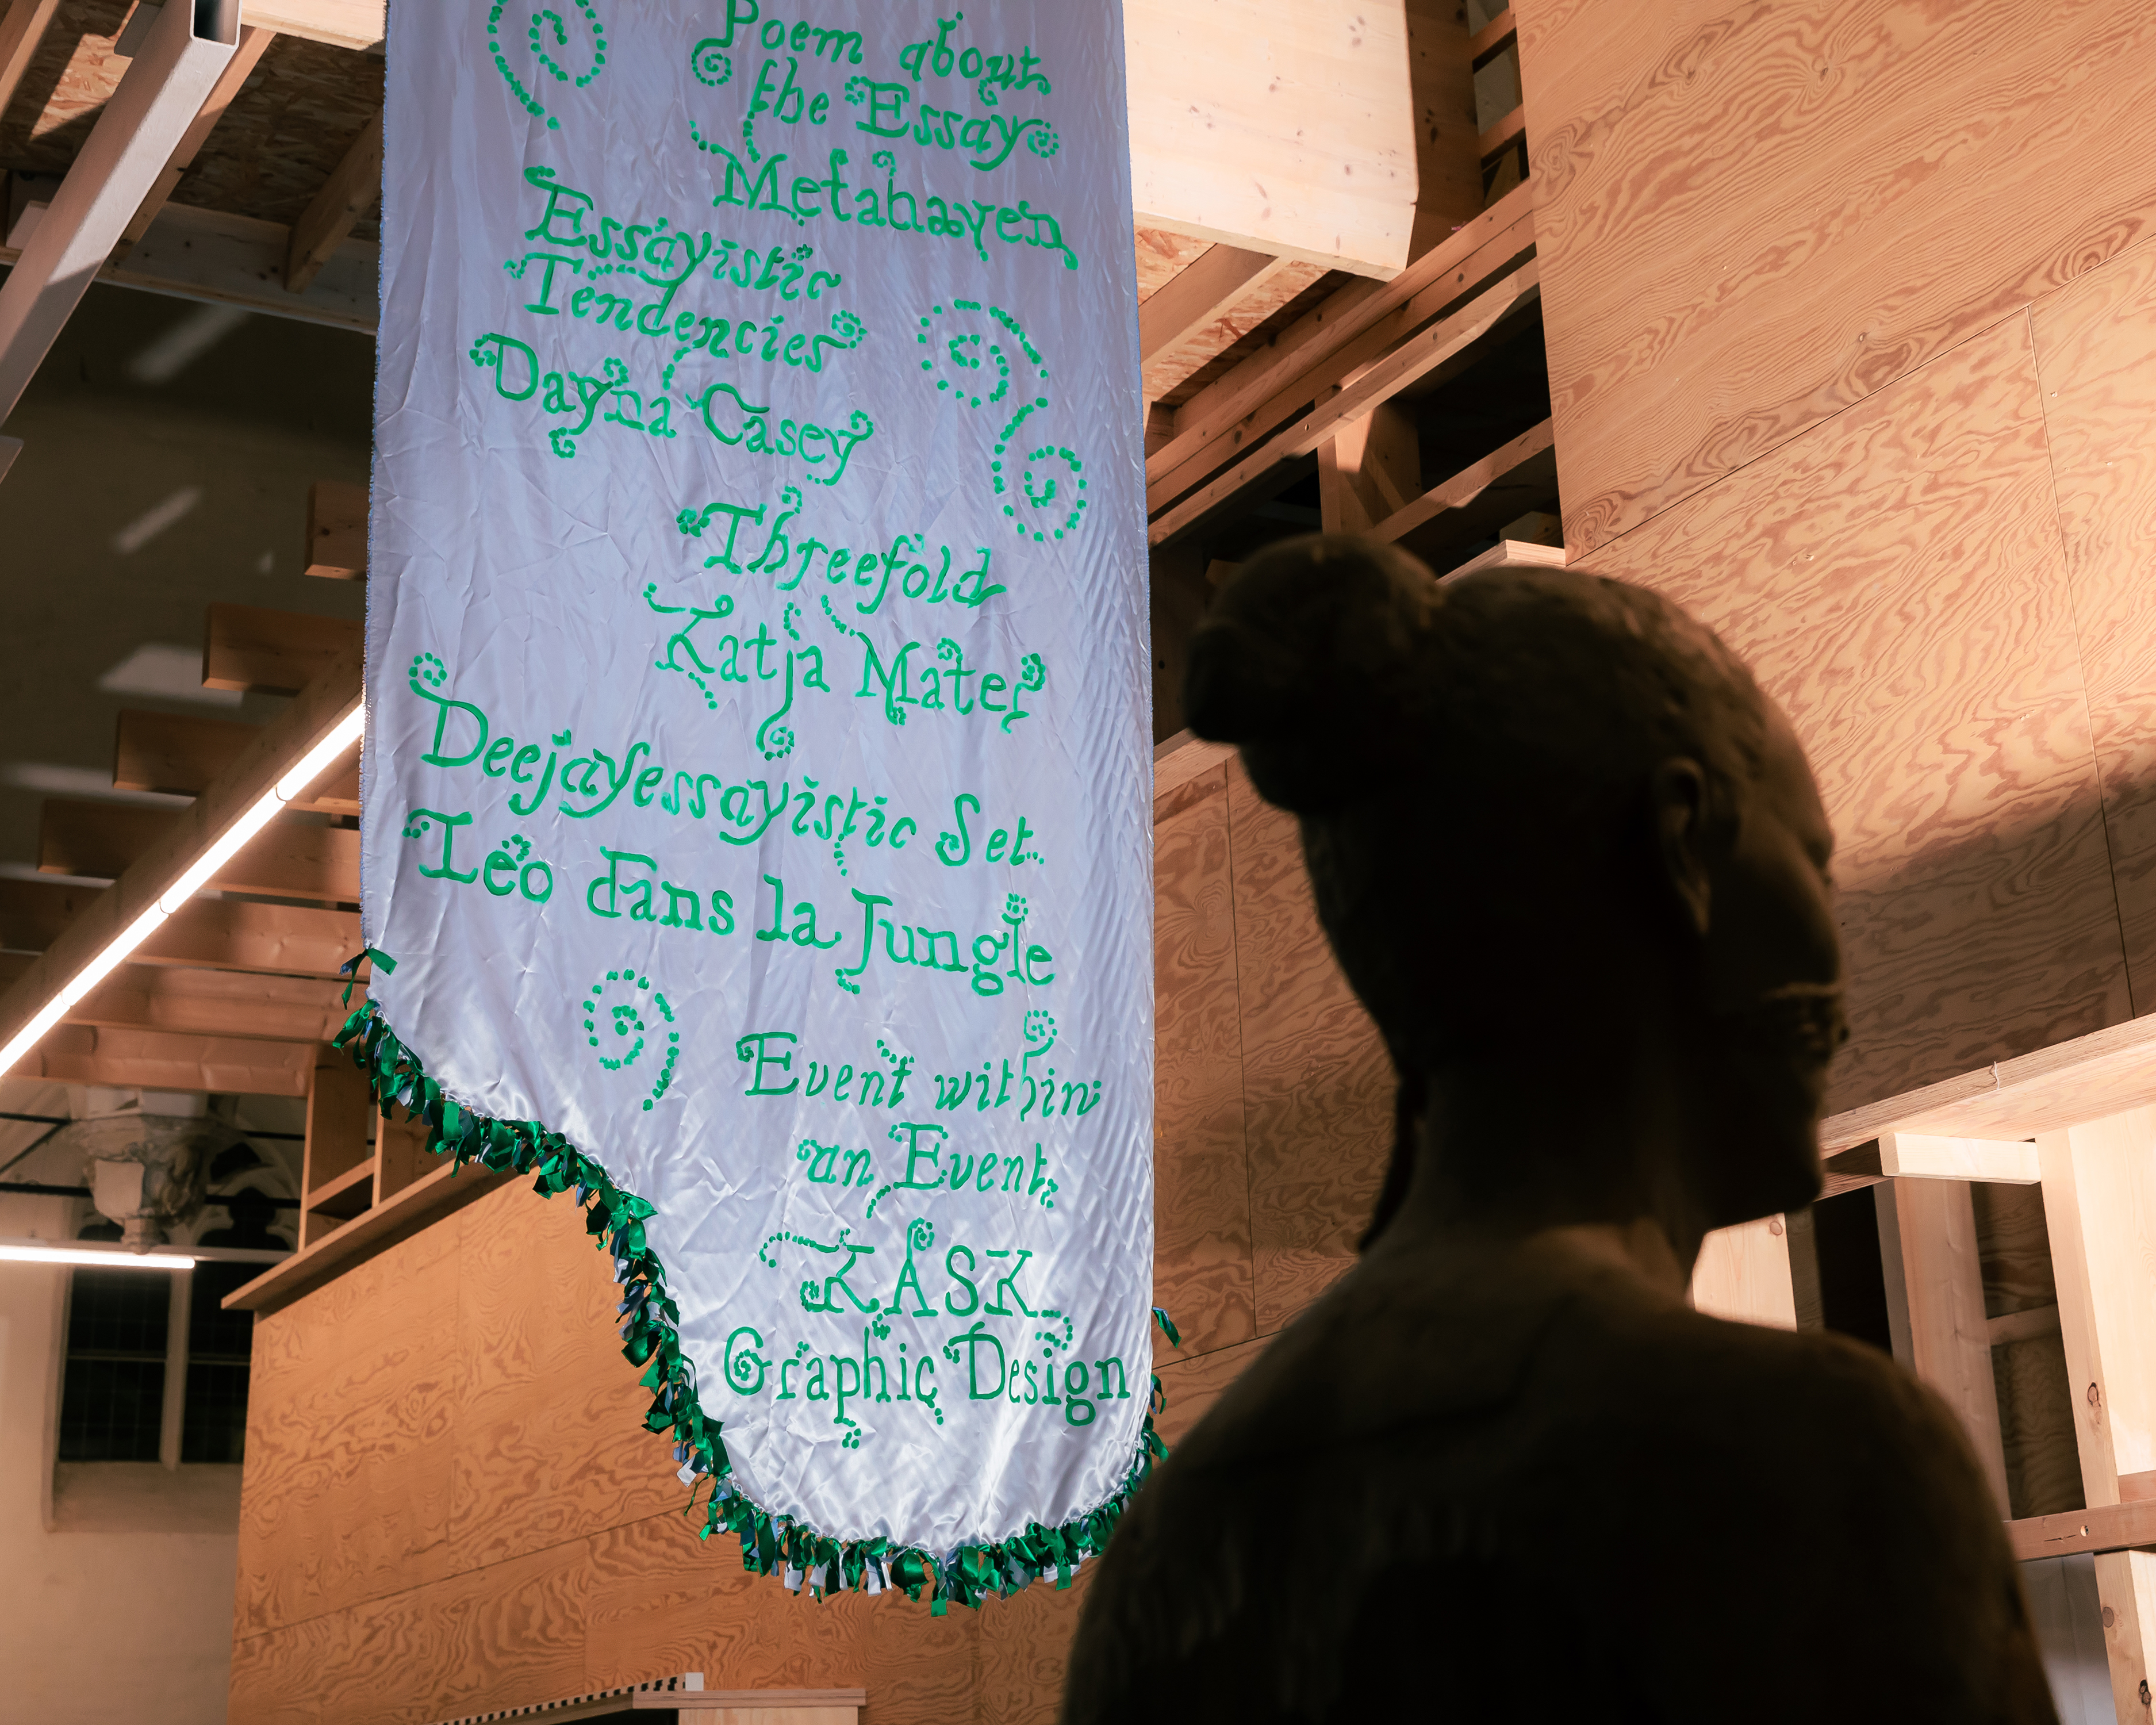 Poem about
the Essay
Metahaven
Essayistic
Tendencies
Dayna Casey
Threefold
Katja Mater
Deejayessayistic Set
Léo dans la Jungle
Event within
an Event
KASK
Graphic Design